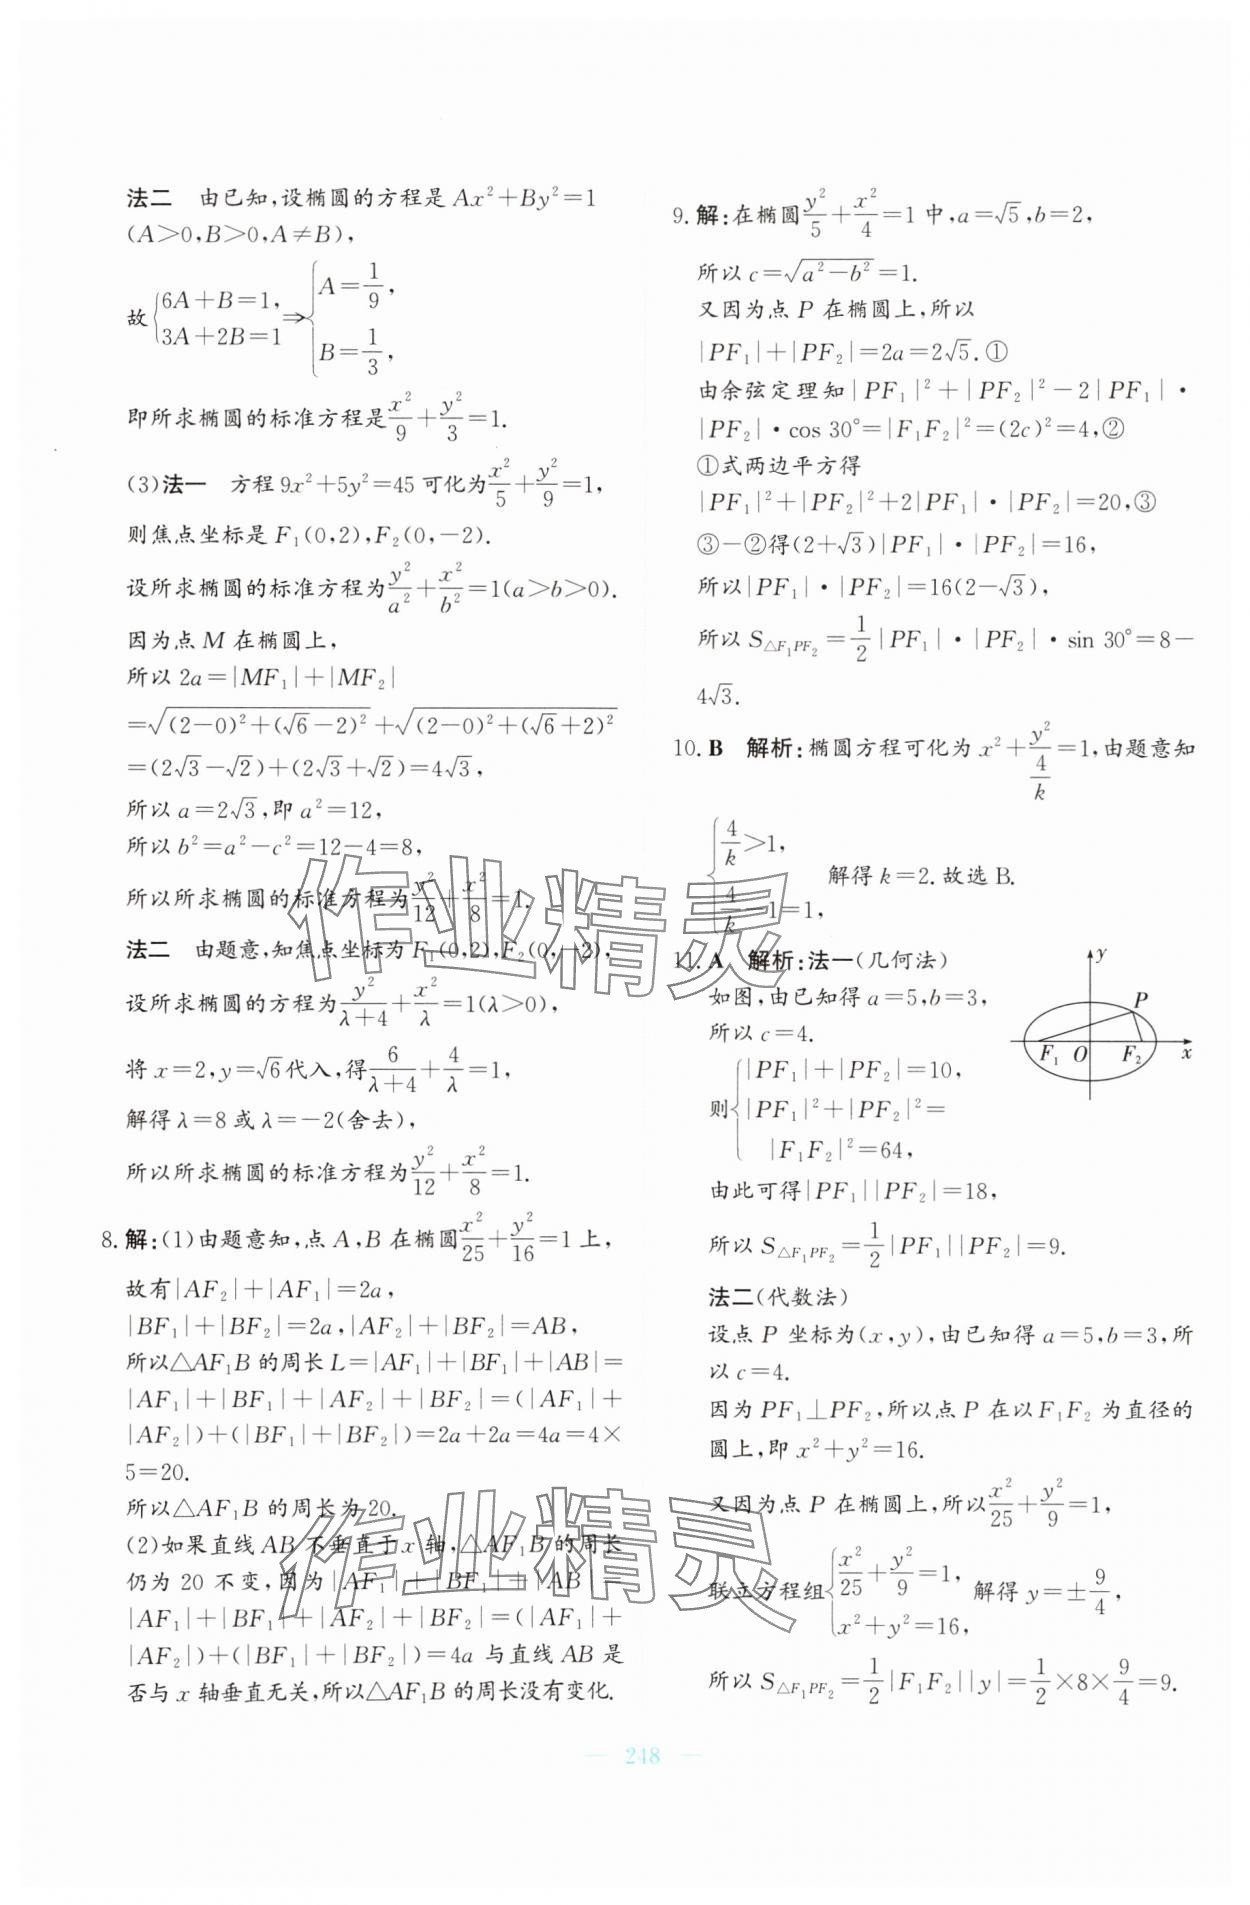 法二　由已知,设椭圆的方程是 Ax²+By²=1
(A>0,B>0,A≠B),
故{6A+B=1, 3A+2B=1 ⇒ {A=1/9, B=1/3,
即所求椭圆的标准方程是x²/9+y²/3=1.
(3)法一　方程 9x²+5y²=45 可化为x²/5+y²/9=1,
则焦点坐标是 F₁(0,2),F₂(0,-2).
设所求椭圆的标准方程为y²/a²+x²/b²=1(a>b>0).
因为点 M 在椭圆上,
所以 2a=|MF₁|+|MF₂|
=√((2-0)²+(√6-2)²)+√((2-0)²+(√6+2)²)
=(2√3-√2)+(2√3+√2)=4√3,
所以 a=2√3,即 a²=12,
所以 b²=a²-c²=12-4=8,
所以所求椭圆的标准方程为y²/12+x²/8=1.
法二　由题意,知焦点坐标为 F₁(0,2),F₂(0,-2),
设所求椭圆的方程为y²/(λ+4)+x²/λ=1(λ>0),
将 x=2,y=√6代入,得6/(λ+4)+4/λ=1,
解得 λ=8 或 λ=-2(舍去),
所以所求椭圆的标准方程为y²/12+x²/8=1.
8. 解:(1)由题意知,点 A,B 在椭圆x²/25+y²/16=1 上,
故有|AF₂|+|AF₁|=2a,
|BF₁|+|BF₂|=2a,|AF₂|+|BF₂|=AB,
所以△AF₁B 的周长 L=|AF₁|+|BF₁|+|AB|=
|AF₁|+|BF₁|+|AF₂|+|BF₂|=(|AF₁|+
|AF₂|)+(|BF₁|+|BF₂|)=2a+2a=4a=4×
5=20.
所以△AF₁B 的周长为 20.
(2)如果直线 AB 不垂直于 x 轴,△AF₁B 的周长
仍为 20 不变,因为|AF₁|+|BF₁|+|AB|=
|AF₁|+|BF₁|+|AF₂|+|BF₂|=(|AF₁|+
|AF₂|)+(|BF₁|+|BF₂|)=4a 与直线 AB 是
否与 x 轴垂直无关,所以△AF₁B 的周长没有变化.
9. 解:在椭圆y²/5+x²/4=1 中,a=√5,b=2,
所以 c=√(a²-b²)=1.
又因为点 P 在椭圆上,所以
|PF₁|+|PF₂|=2a=2√5.①
由余弦定理知|PF₁|²+|PF₂|²-2|PF₁|·
|PF₂|·cos 30°=|F₁F₂|²=(2c)²=4,②
①式两边平方得
|PF₁|²+|PF₂|²+2|PF₁|·|PF₂|=20,③
③-②得(2+√3)|PF₁|·|PF₂|=16,
所以|PF₁|·|PF₂|=16(2-√3),
所以 S△F₁PF₂=1/2|PF₁|·|PF₂|·sin 30°=8-
4√3.
10. B　解析:椭圆方程可化为 x²+y²/(4/k)=1,由题意知
{4/k>1, 4/k-1=1, 解得 k=2.故选 B.
11. A　解析:法一(几何法)
如图,由已知得 a=5,b=3,
所以 c=4.
则{|PF₁|+|PF₂|=10,
|PF₁|²+|PF₂|²=
|F₁F₂|²=64,
由此可得|PF₁||PF₂|=18,
所以 S△F₁PF₂=1/2|PF₁||PF₂|=9.
y
P
F₁ O F₂ x
法二(代数法)
设点 P 坐标为(x,y),由已知得 a=5,b=3,所
以 c=4.
因为 PF₁⊥PF₂,所以点 P 在以 F₁F₂ 为直径的
圆上,即 x²+y²=16.
又因为点 P 在椭圆上,所以x²/25+y²/9=1,
联立方程组{x²/25+y²/9=1, x²+y²=16, 解得 y=±9/4,
所以 S△F₁PF₂=1/2|F₁F₂||y|=1/2×8×9/4=9.
— 248 —
作业精灵
作业精灵